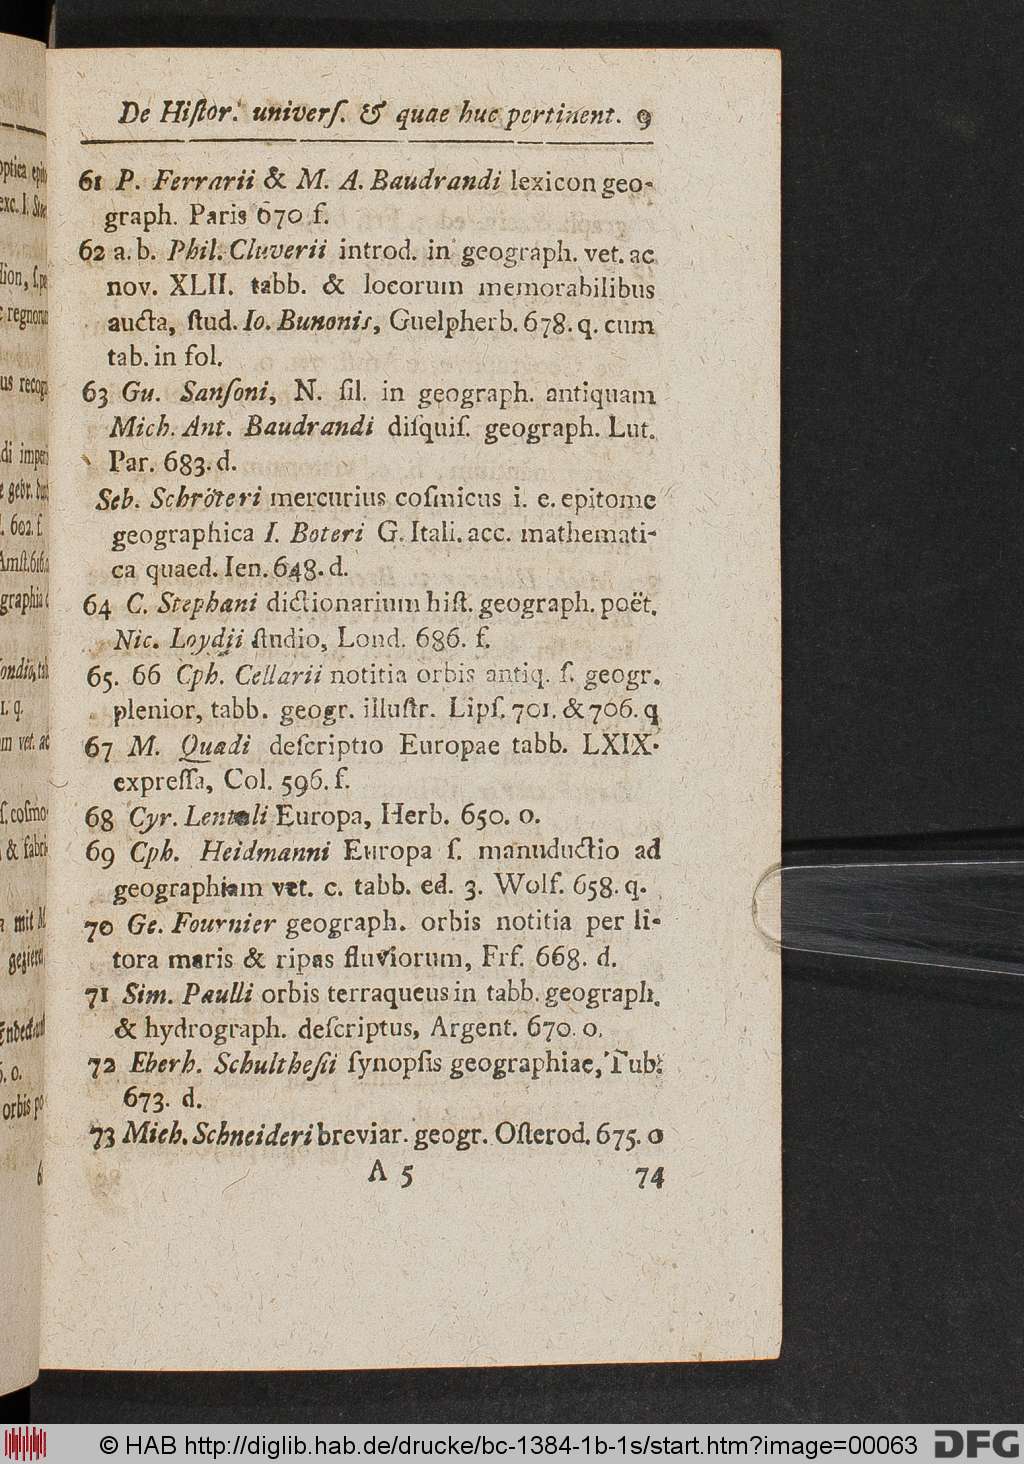 De Hiſtor. univerſ. & quae huc pertinent. 9
61 P. Ferrarii & M. A. Baudrandi lexicon geo-
graph. Paris 670 f.
62 a. b. Phil. Cluverii introd. in geograph. vet. ac
nov. XLII. tabb. & locorum memorabilibus
aucta, ſtud. Io. Bunonis, Guelpherb. 678. q. cum
tab. in fol.
63 Gu. Sanſoni, N. fil. in geograph. antiquam
Mich. Ant. Baudrandi diſquiſ. geograph. Lut.
Par. 683. d.
Seb. Schröteri mercurius coſmicus i. e. epitome
geographica I. Boteri G. Itali. acc. mathemati-
ca quaed. Ien. 648. d.
64 C. Stephani dictionarium hiſt. geograph. poët.
Nic. Loydii ſtudio, Lond. 686. f.
65. 66 Cph. Cellarii notitia orbis antiq. ſ. geogr.
plenior, tabb. geogr. illuſtr. Lipſ. 701. & 706. q
67 M. Quadi deſcriptio Europae tabb. LXIX.
expreſſa, Col. 596. f.
68 Cyr. Lentuli Europa, Herb. 650. o.
69 Cph. Heidmanni Europa ſ. manuductio ad
geographiam vet. c. tabb. ed. 3. Wolf. 658. q.
70 Ge. Fournier geograph. orbis notitia per li-
tora maris & ripas fluviorum, Frf. 668. d.
71 Sim. Paulli orbis terraqueus in tabb. geograph.
& hydrograph. deſcriptus, Argent. 670. o.
72 Eberh. Schultheſii ſynopſis geographiae, Tub.
673. d.
73 Mich. Schneideri breviar. geogr. Oſterod. 675. o
A 5 74
© HAB http://diglib.hab.de/drucke/bc-1384-1b-1s/start.htm?image=00063 DFG